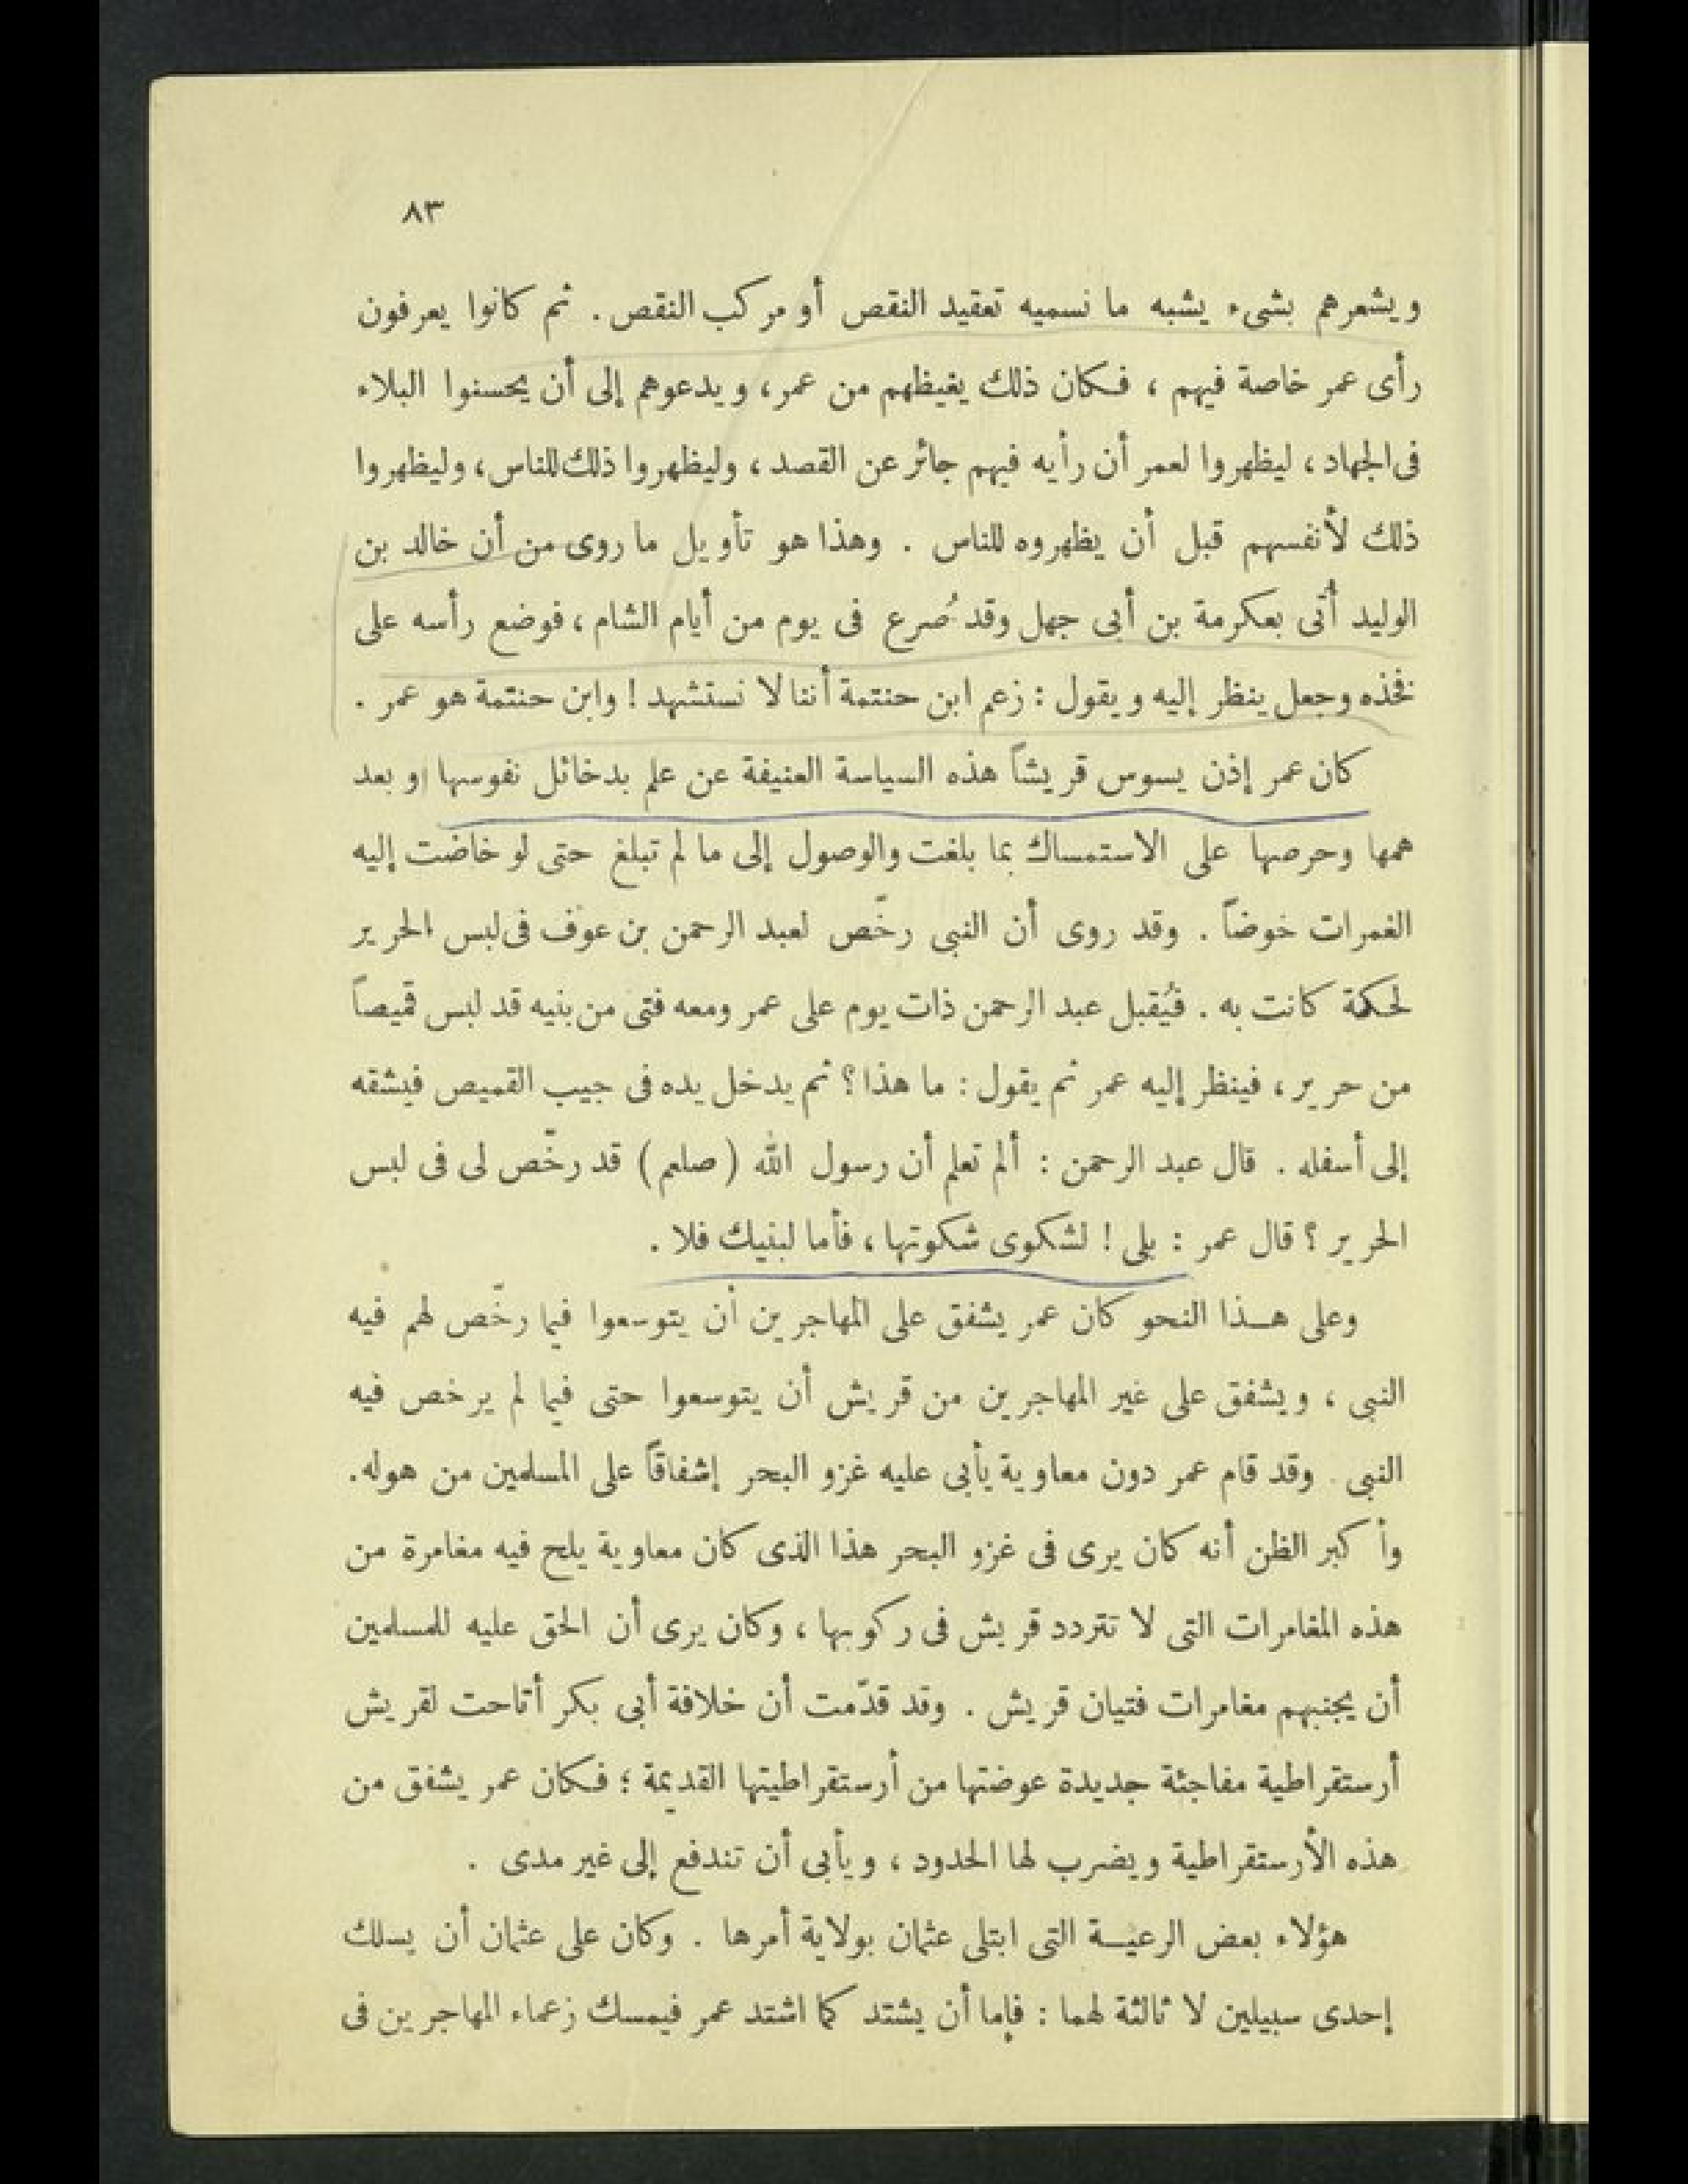 ٨٣
ويشعرهم بشىء يشبه ما نسميه تعقيد النقص أو مركب النقص . ثم كانوا يعرفون
رأى عمر خاصة فيهم ، فكان ذلك يغيظهم من عمر ، ويدعوهم إلى أن يحسنوا البلاء
فى الجهاد ، ليظهروا لعمر أن رأيه فيهم جائر عن القصد ، وليظهروا ذلك للناس ، وليظهروا
ذلك لأنفسهم قبل أن يظهروه للناس . وهذا هو تأويل ما روى من أن خالد بن
الوليد أتى بعكرمة بن أبى جهل وقد صُرع فى يوم من أيام الشام ، فوضع رأسه على
فخذه وجعل ينظر إليه ويقول : زعم ابن حنتمة أننا لا نستشهد ! وابن حنتمة هو عمر .
كان عمر إذن يسوس قريشاً هذه السياسة العنيفة عن علم بدخائل نفوسها وبعد
هممها وحرصها على الاستمساك بما بلغت والوصول إلى ما لم تبلغ حتى لو خاضت إليه
الغمرات خوضاً . وقد روى أن النبى رخّص لعبد الرحمن بن عوف فى لبس الحرير
لحكة كانت به . فيُقبل عبد الرحمن ذات يوم على عمر ومعه فتى من بنيه قد لبس قميصاً
من حرير ، فينظر إليه عمر ثم يقول : ما هذا ؟ ثم يدخل يده فى جيب القميص فيشقه
إلى أسفله . قال عبد الرحمن : ألم تعلم أن رسول الله (صلعم) قد رخّص لى فى لبس
الحرير ؟ قال عمر : بلى ! لشكوى شكوتها ، فأما لبنيك فلا .
وعلى هـذا النحو كان عمر يشفق على المهاجرين أن يتوسعوا فيما رخّص لهم فيه
النبى ، ويشفق على غير المهاجرين من قريش أن يتوسعوا حتى فيما لم يرخص فيه
النبى . وقد قام عمر دون معاوية يأبى عليه غزو البحر إشفاقاً على المسلمين من هوله .
وأكبر الظن أنه كان يرى فى غزو البحر هذا الذى كان معاوية يلح فيه مغامرة من
هذه المغامرات التى لا تتردد قريش فى ركوبها ، وكان يرى أن الحق عليه للمسلمين
أن يجنبهم مغامرات فتيان قريش . وقد قدّمت أن خلافة أبى بكر أتاحت لقريش
أرستقراطية مفاجئة جديدة عوضتها من أرستقراطيتها القديمة ؛ فكان عمر يشفق من
هذه الأرستقراطية ويضرب لها الحدود ، ويأبى أن تندفع إلى غير مدى .
هؤلاء بعض الرعيـة التى ابتلى عثمان بولاية أمرها . وكان على عثمان أن يسلك
إحدى سبيلين لا ثالثة لهما : فإما أن يشتد كما اشتد عمر فيمسك زعماء المهاجرين فى